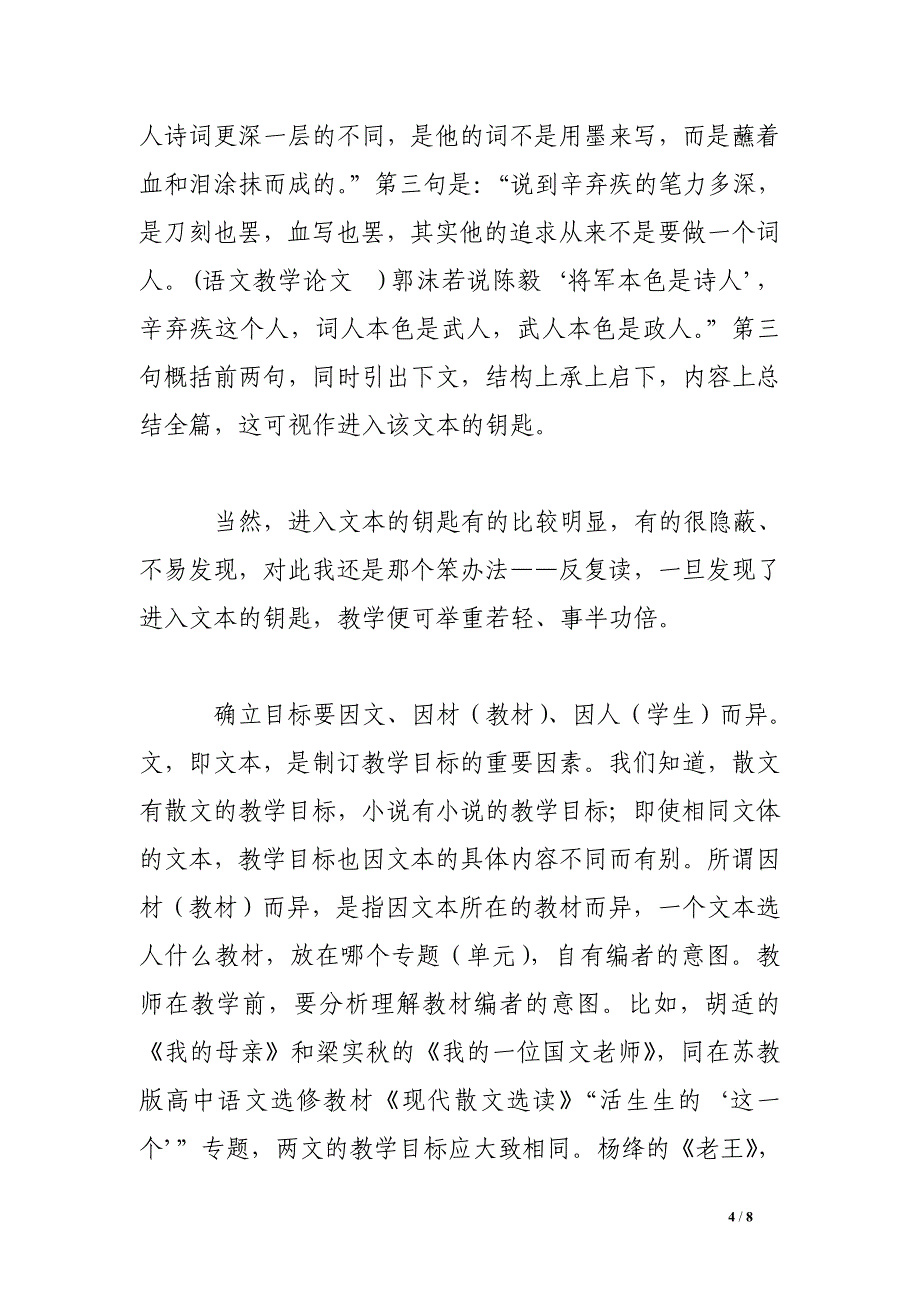 人诗词更深一层的不同，是他的词不是用墨来写，而是蘸着
血和泪涂抹而成的。”第三句是：“说到辛弃疾的笔力多深，
是刀刻也罢，血写也罢，其实他的追求从来不是要做一个词
人。(语文教学论文　)郭沫若说陈毅‘将军本色是诗人’，
辛弃疾这个人，词人本色是武人，武人本色是政人。”第三
句概括前两句，同时引出下文，结构上承上启下，内容上总
结全篇，这可视作进入该文本的钥匙。
当然，进入文本的钥匙有的比较明显，有的很隐蔽、
不易发现，对此我还是那个笨办法——反复读，一旦发现了
进入文本的钥匙，教学便可举重若轻、事半功倍。
确立目标要因文、因材（教材）、因人（学生）而异。
文，即文本，是制订教学目标的重要因素。我们知道，散文
有散文的教学目标，小说有小说的教学目标；即使相同文体
的文本，教学目标也因文本的具体内容不同而有别。所谓因
材（教材）而异，是指因文本所在的教材而异，一个文本选
人什么教材，放在哪个专题（单元），自有编者的意图。教
师在教学前，要分析理解教材编者的意图。比如，胡适的
《我的母亲》和梁实秋的《我的一位国文老师》，同在苏教
版高中语文选修教材《现代散文选读》“活生生的‘这一
个’”专题，两文的教学目标应大致相同。杨绛的《老王》，
4 / 8